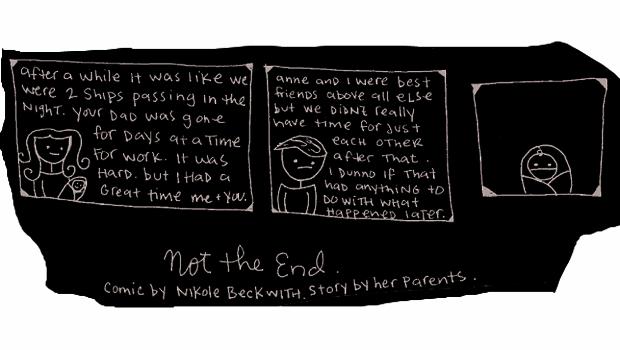 after a while it was like we
were 2 ships passing in the
night. your dad was gone
for days at a time
for work. it was
hard. but I had a
great time me + you.
anne and I were best
friends above all else
but we didnt really
have time for just
each other
after that.
I dunno if that
had anything to
do with what
happened later.
Not the End.
Comic by Nikole Beckwith. Story by her parents.